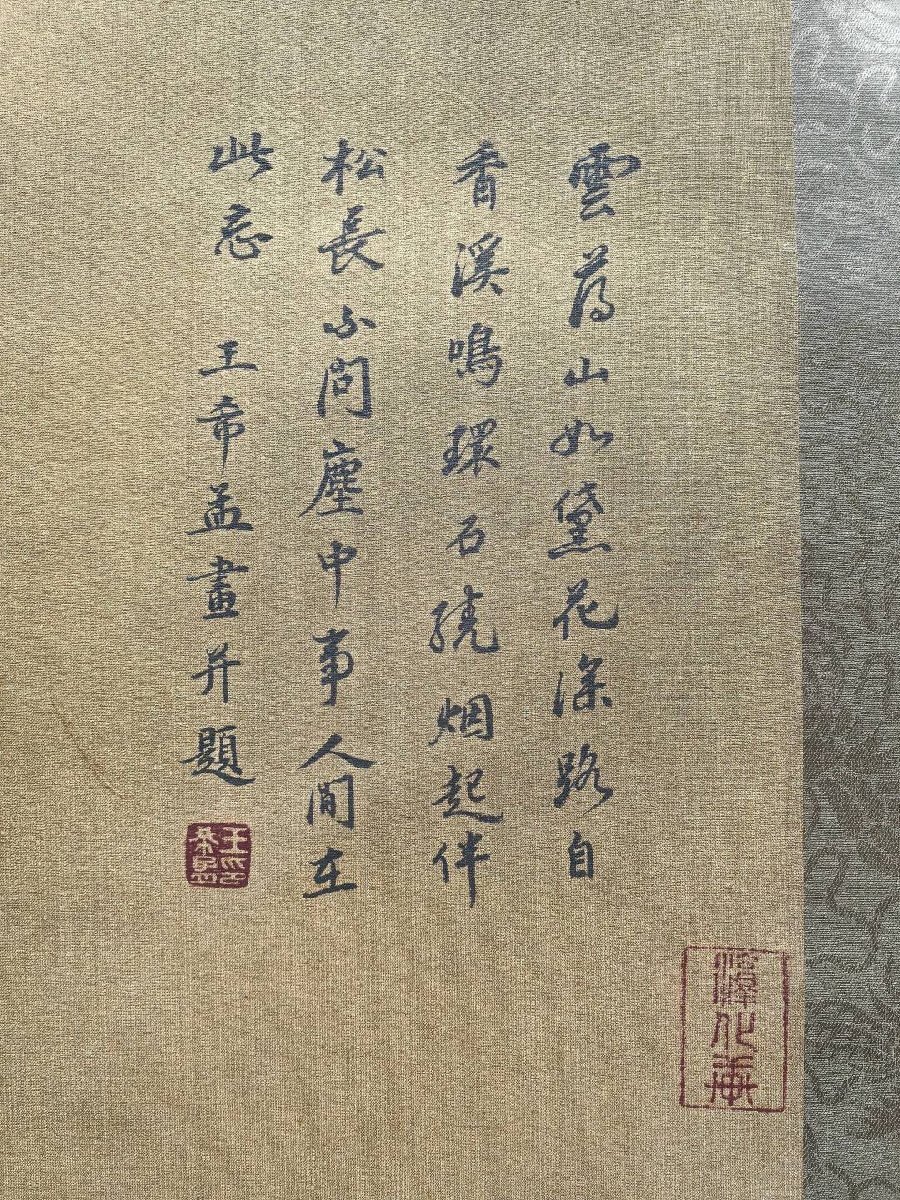 雲薄山如黛花深路自
香溪鳴環石繞烟起伴
松長不問塵中事人間在
此忘 王希孟畫并題
王希孟印